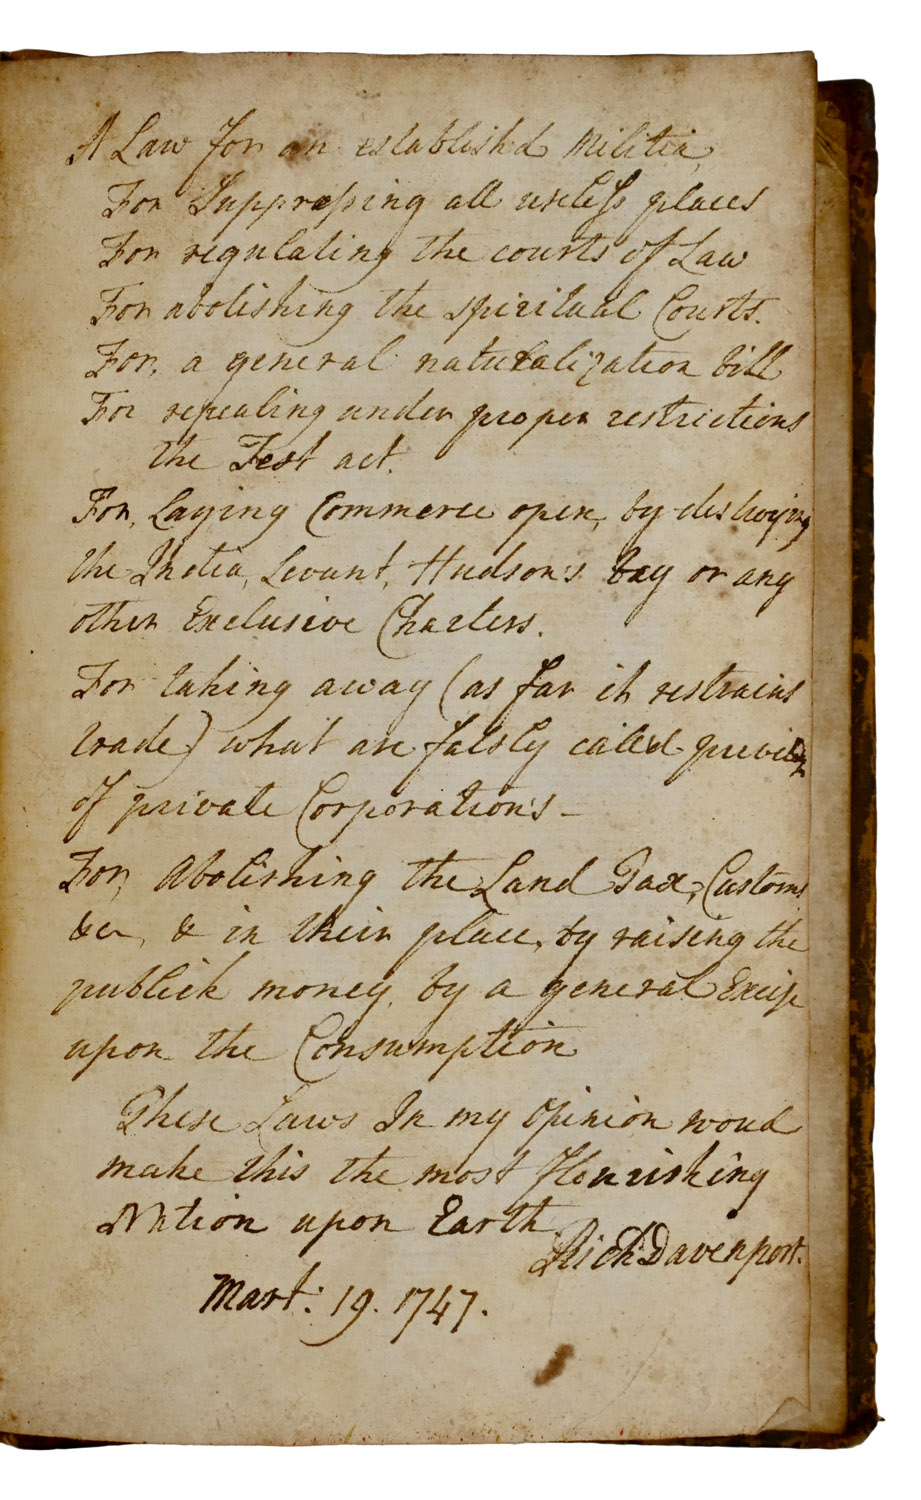 A Law for an establish'd Militia,
For Suppressing all useless places
For regulating the courts of Law
For abolishing the spiritual Courts.
For, a general naturalization bill
For repealing under proper restrictions
the Test act.
For, Laying Commerce open, by destroying
the India, Levant, Hudson's bay or any
other Exclusive Charters.
For taking away (as far it restrains
trade) what are falsly called
of private Corporations –
For, Abolishing the Land Tax, Customs
&c, & in their place, by raising the
publick money, by a general Excise
upon the Consumption
These Laws In my Opinion woud
make this the most flourishing
Nation upon Earth
Rich: Davenport.
Mart: 19. 1747.